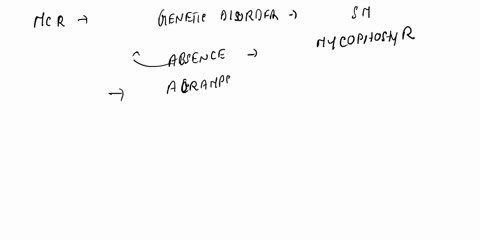 MCR → GENETIC DISORDER → SM
^ ABSENCE → MYCOPHOSTYR
→